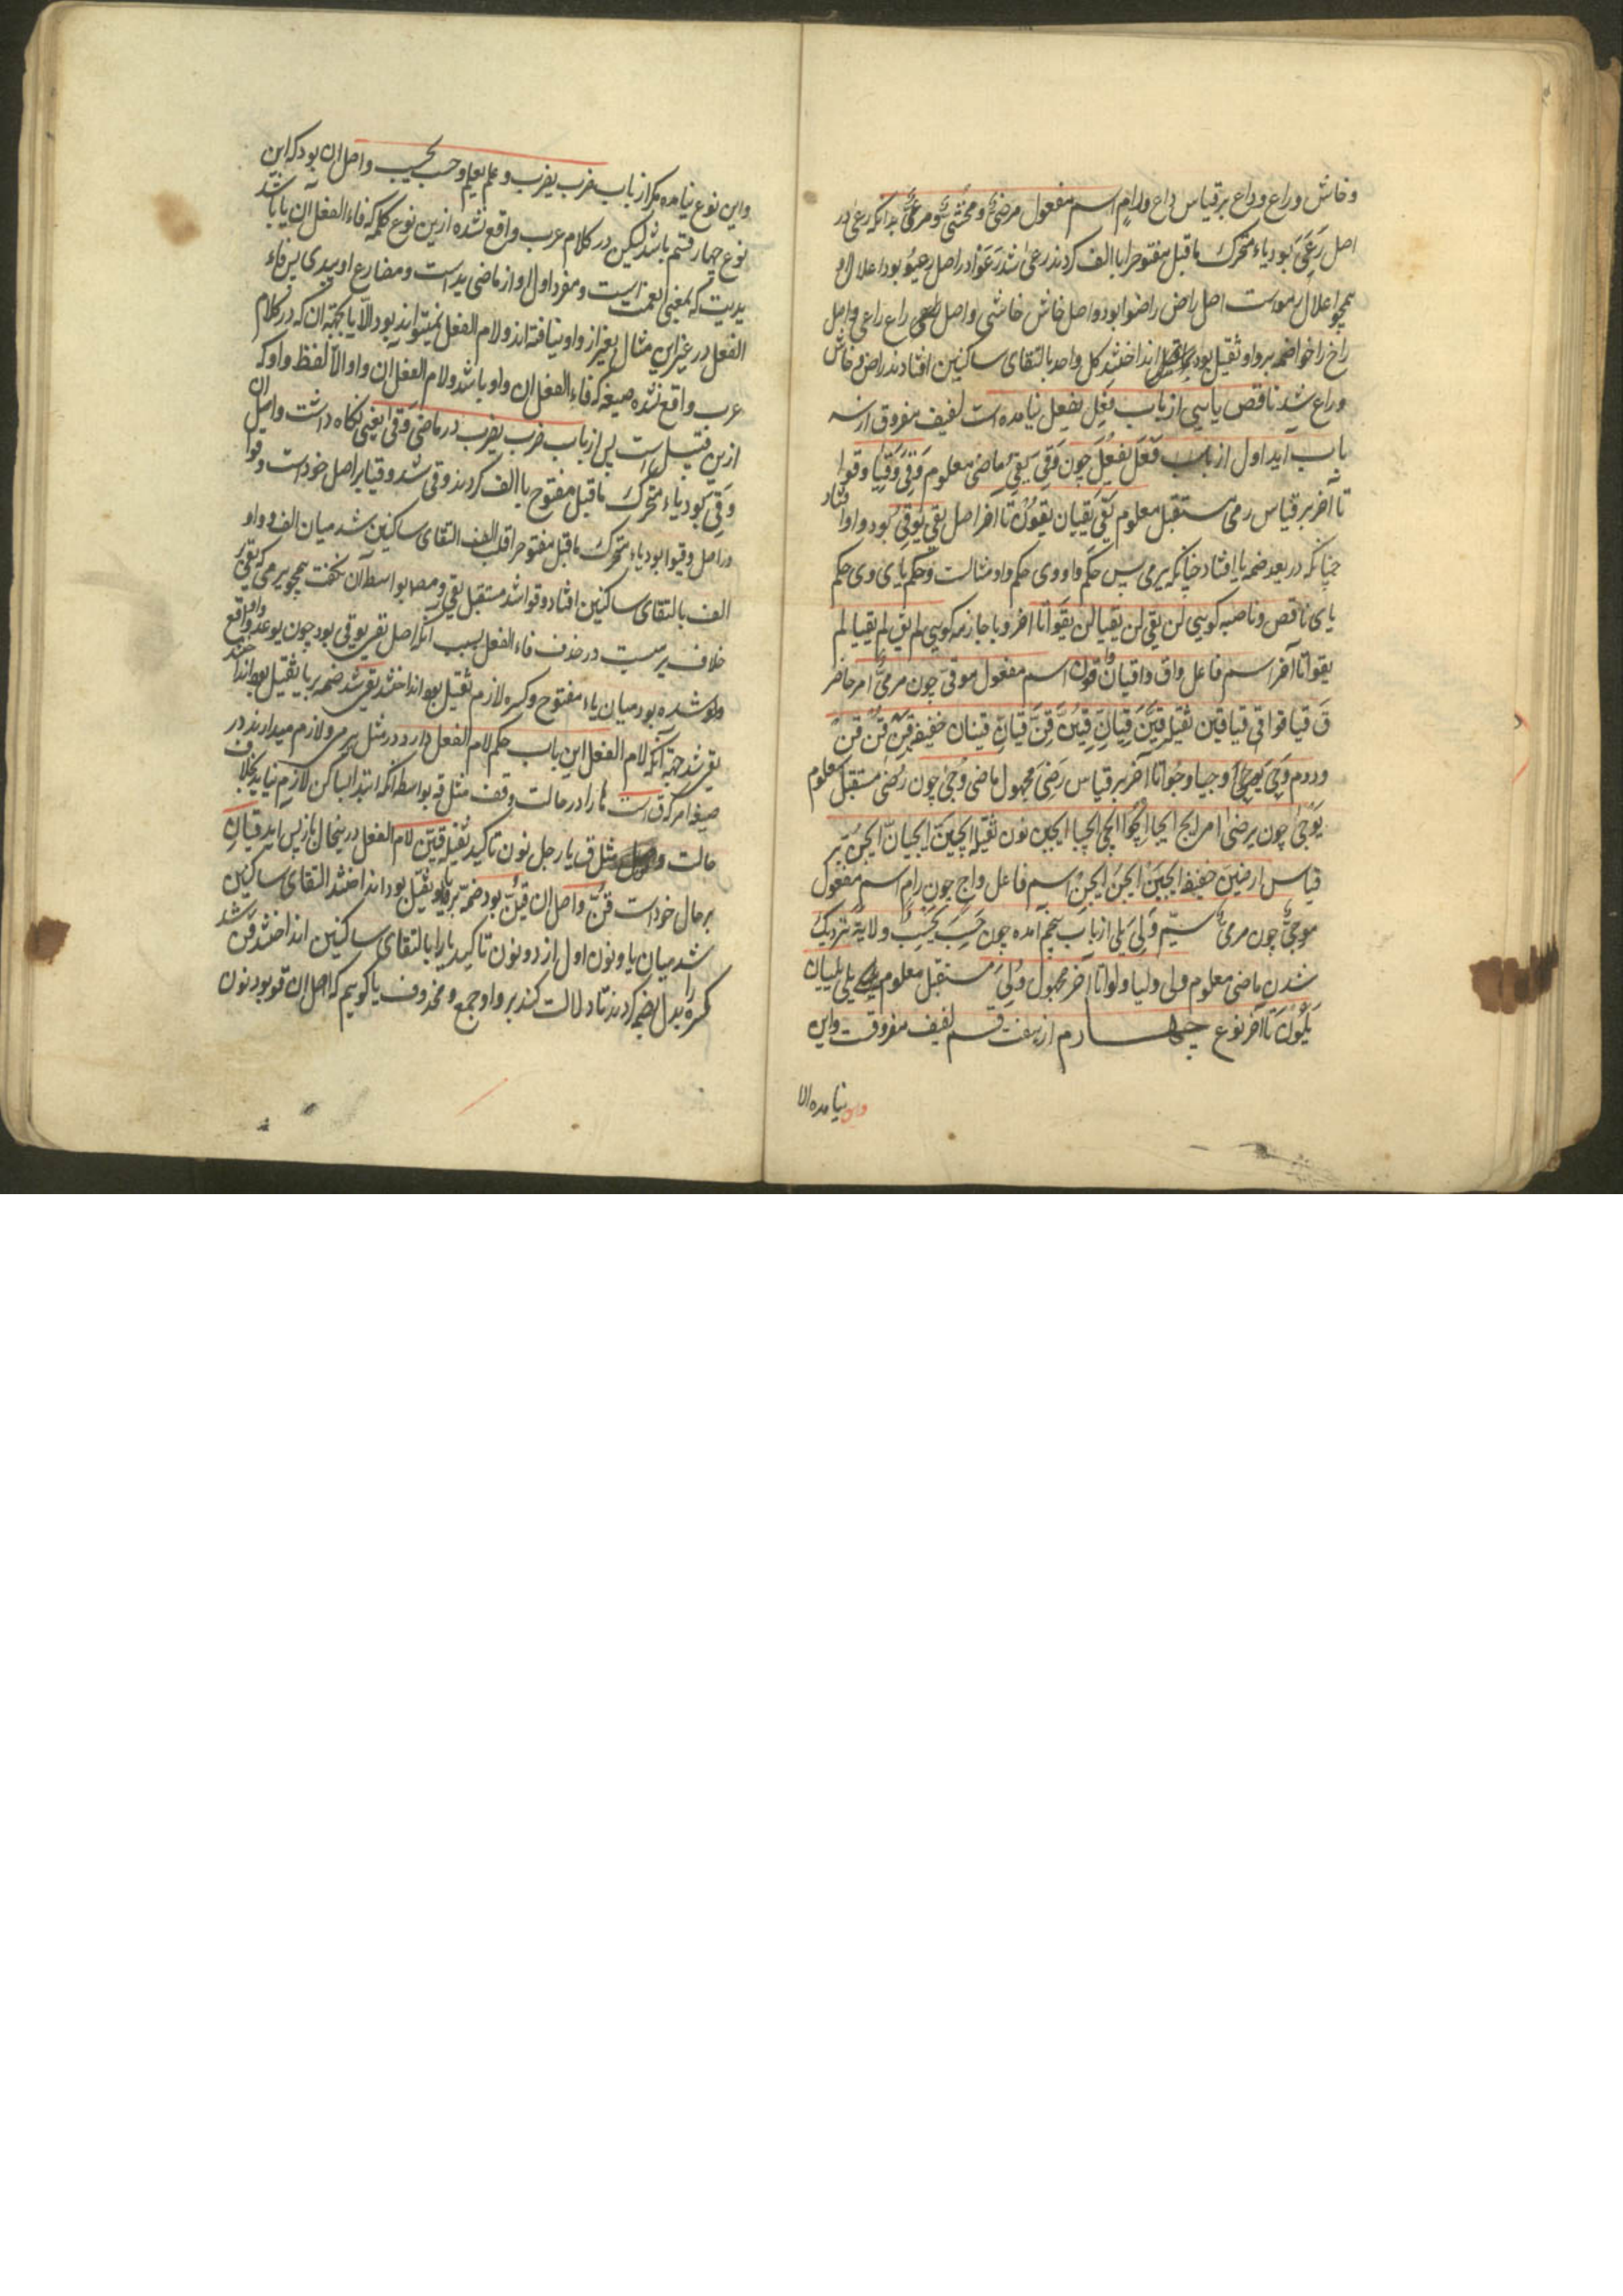 وخاش وراع وداع بر قیاس داع ورام اسم مفعول مرضیٌّ ومخشیٌّ ومرعیٌّ بدانکه رعی در
اصل رَعَیَ بود یاء متحرک ماقبل مفتوح را با الف کردند رعی شد رَعَوْا در اصل رعیوا بود اعلال او
همچو اعلال رموست اصل راض راضوا بود واصل خاش خاشی واصل راع راعی واصل
راخ راخوا ضمه بر واو ثقیل بود انداختند کل واحد بالتقای ساکنین افتادند راض خاش
وراع شد ناقص یایی از باب فعِل یفعِل نیامده است لفیف مفروق از سه
باب اید اول از باب فَعَل یفعِل چون وَقی یقی ماضی معلوم وَقی وَقیا وقوا
تا آخر بر قیاس رمی مستقبل معلوم یَقی یَقیان یقون تا آخر اصل یقی یَوقِی بود واو افتاد
چنانکه در یعد ضمه یا افتاد چنانکه یرمی پس حکم واو وی حکم واو مثالست وحکم یای وی حکم
یای ناقص وناصبه کویی لن یقی لن یقیا لن یقوا تا آخر وبا جازمه کویی لم یق لم یقیا لم
یقوا تا آخر اسم فاعل واق واقیان واقون اسم مفعول موقیّ چون مرمیٌّ امر حاضر
قِ قیا قوا قی قیا قین ثقیله قِیَنَّ قِیانِّ قُنَّ قِنَّ قیانِّ قینان خفیفه قِیَنْ قُنْ قِنْ
ودوم وَجِیَ یَوجی وجیا وجُوا تا آخر بر قیاس رَضِیَ مجهول ماضی وُجِیَ چون رُضِیَ مستقبل معلوم
یَوجی چون یرضی امر ایج ایجیا ایجوا ایجی ایجیا ایجین نون ثقیله ایجیَنَّ ایجیانّ ایجَوُنَّ بر
قیاس ارضینَّ خفیفه ایجیَنْ ایجَوُنْ ایجَیِنْ اسم فاعل واجٍ چون رامٍ اسم مفعول
موجیٌّ چون مرمیٌّ سیّم وَلِیَ یَلی از باب پنجم امده چون حَسِبَ یَحسِبُ ولایةً نزدیک
شدن ماضی معلوم ولی ولیا ولوا تا آخر مجهول وُلِیَ مستقبل معلوم یلی یلیان
یَلُونَ تا آخر نوع چهارم از هفت قسم لفیف مفروقست واین
واین نیامده الا
واین نوع نیامده مکر از باب ضرب یضرب وعلم یعلم وحسب یحسب واصل ان بود که این
نوع چهار قسم باشد لیکن در کلام عرب واقع نشده ازین نوع کلمه که فاء الفعل ان یا باشد الا
یدیت که بمعنی نعمت است ومفرد اول او از ماضی یدی است ومضارع او ییدی پس فاء
الفعل در غیر این مثال بغیر از واو نیافته اند ولام الفعل نمیتواند بود الا یا بجهة ان که در کلام
عرب واقع نشده صیغه که فاء الفعل ان واو باشد ولام الفعل ان واو الا لفظ واو که
ازین قبیل است پس از باب ضرب یضرب در ماضی وَقی یعنی نکاه داشت واصل ان
وَقَیَ بود یاء متحرک ماقبل مفتوح با الف کردند وقی شد وقیا بر اصل خود است وقوا
در اصل وقیوا بود یاء متحرک ماقبل مفتوح را قلب الف التقای ساکنین شد میان الف وواو
الف بالتقای ساکنین افتاد وقوا شد مستقبل یقی بواسطه آن نکفت همچو یرمی که یقی بر
خلاف یرمیست در حذف فاء الفعل بسبب انکه اصل یقی یوقی بود چون یوعد واو واقع
شده بود میان یاء مفتوح وکسره لازم ثقیل بود انداختند یقی شد ضمه بر یا ثقیل بود انداختند
یقی شد جهة آنکه لام الفعل این باب حکم لام الفعل دارد در مثل یرمی ولازم میدارند در
صیغه امر که ق است ها را در حالت وقف مثل قه بواسطه انکه ابتدا بساکن لازم نیاید بخلاف
حالت وصل مثل ق یا رجل نون تاکید ثقیله قیَنَّ لام الفعل در ینحال باز پس اید قیانِّ
بر حال خود است قُنَّ واصل ان قیُنَّ بود ضمه بر یا ثقیل بود انداختند التقای ساکنین
شد میان یا ونون اول از دو نون تاکید یا را بالتقای ساکنین انداختند قِنَّ شد
کسره را بدل بضمه کردند تا دلالت کند بر واو جمع ومحذوف یا کوییم که اصل ان قو بود نون